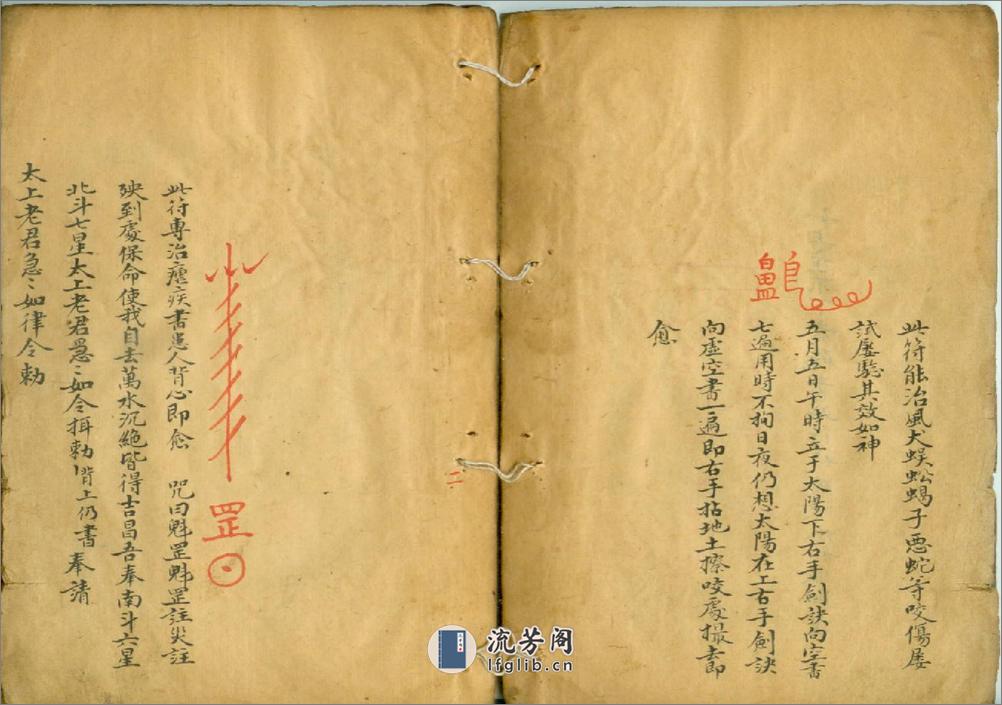 此符能治風犬蜈蚣蝎子惡蛇等咬傷屡
試屡驗其效如神
五月五日午時立于太陽下右手劍訣向空書
七遍用時不拘日夜仍想太陽在上右手劍訣
向虛空書一遍即右手拈地土擦咬處撮去即
愈
二
罡
此符專治瘧疾書患人背心即愈 咒曰魁罡魁罡註災註
殃到處保命使我自去萬水沉絶皆得吉昌吾奉南斗六星
北斗七星太上老君急〻如令 勅背上仍書 奉請
太上老君急〻如律令勅
流芳阁
lfglib.cn